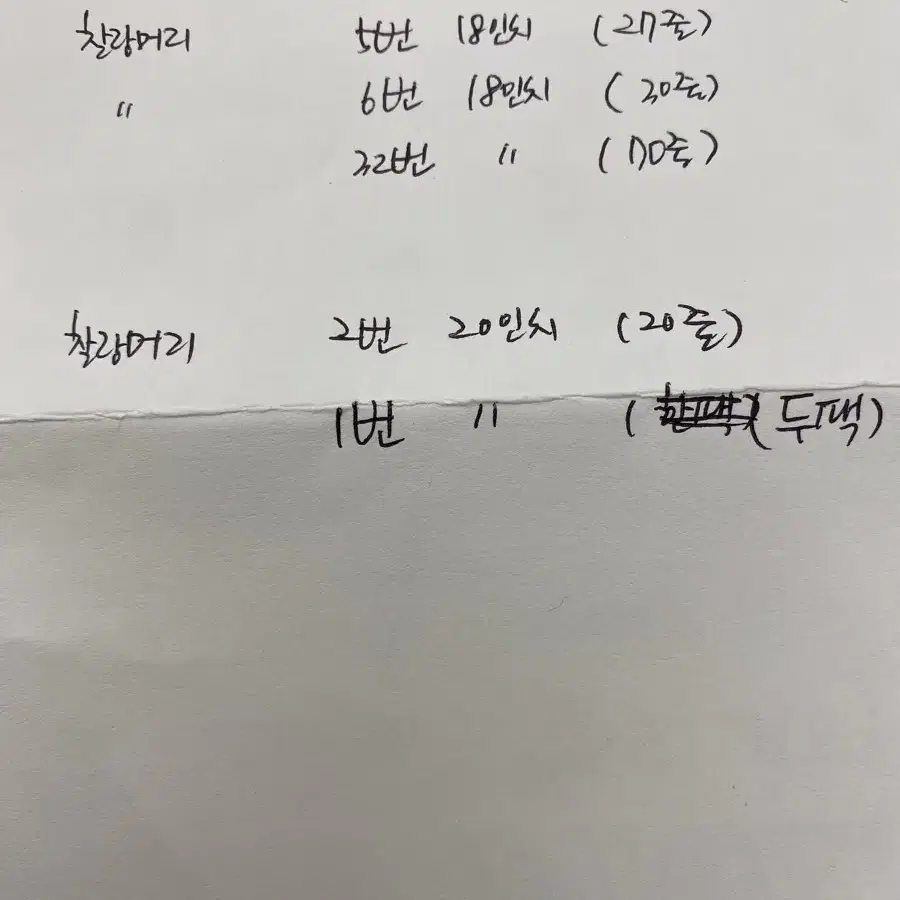 찰랑머리 5번 18인치 (27줄)
〃 6번 18인치 (30줄)
32번 〃 (70줄)
찰랑머리 2번 20인치 (20줄)
1번 〃 ( (두팩)